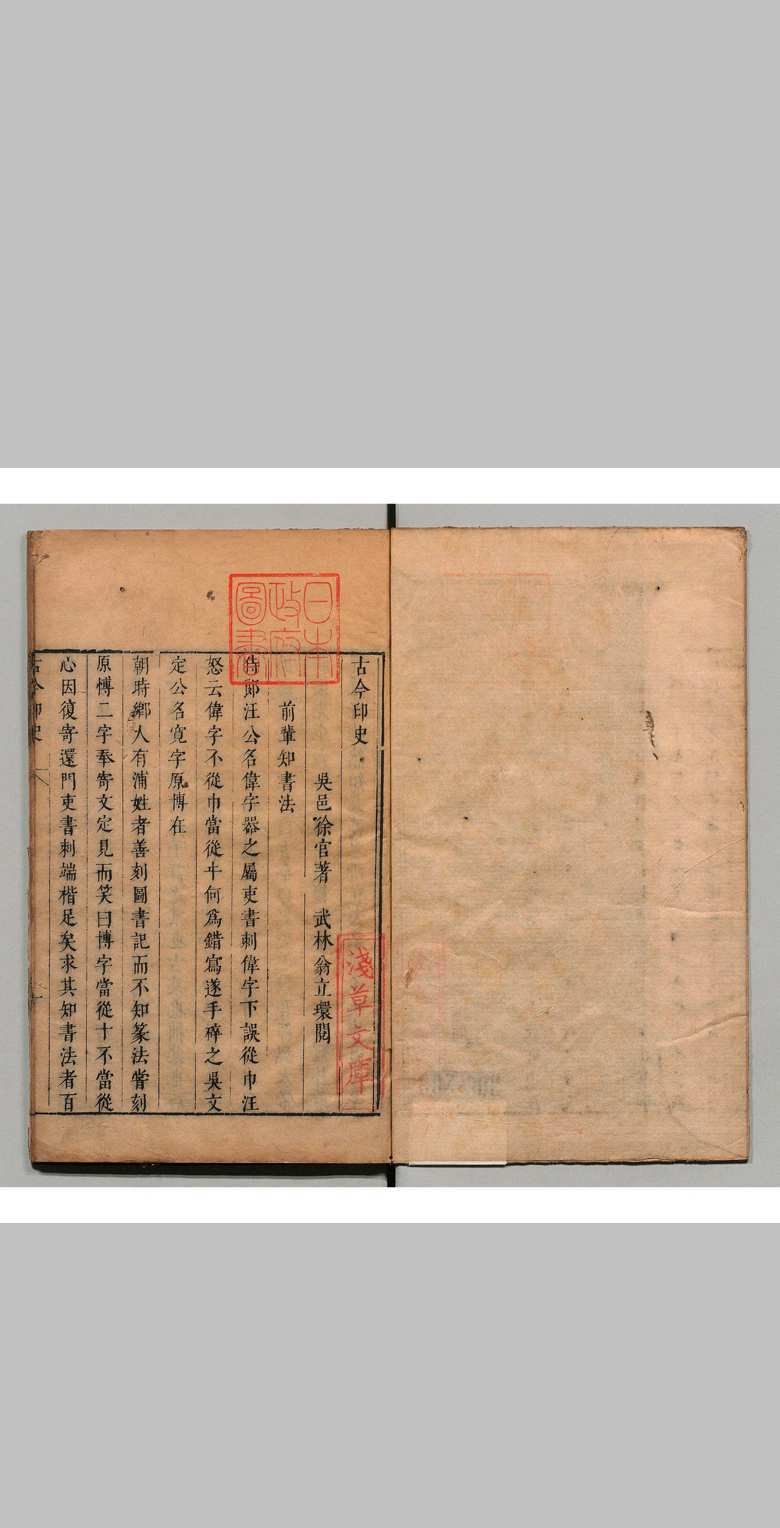 古今印史
吳邑徐官著　武林翁立環閱
前輩知書法
侍郎汪公名偉字器之屬吏書刺偉字下誤從巾汪
怒云偉字不從巾當從㐄何爲錯寫遂手碎之吳文
定公名寬字原博在
朝時鄉人有浦姓者善刻圖書記而不知篆法嘗刻
原愽二字奉寄文定見而笑曰博字當從十不當從
心因復寄還門吏書刺端楷足矣求其知書法者百
古今印史
日本
政府
圖書
淺草文庫